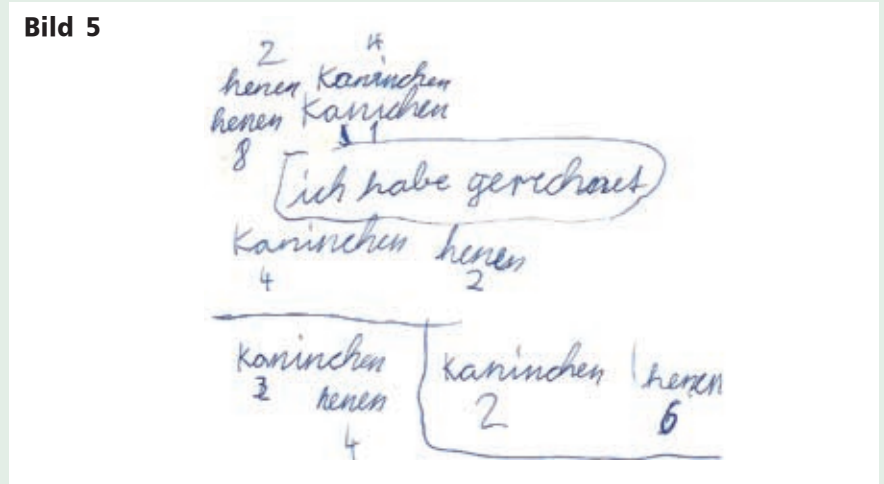 Bild 5
2 4
henen Kaninchen
henen Kanichen
8 1
ich habe gerechnet
Kaninchen henen
4 2
Kaninchen
3 henen
4
Kaninchen henen
2 6